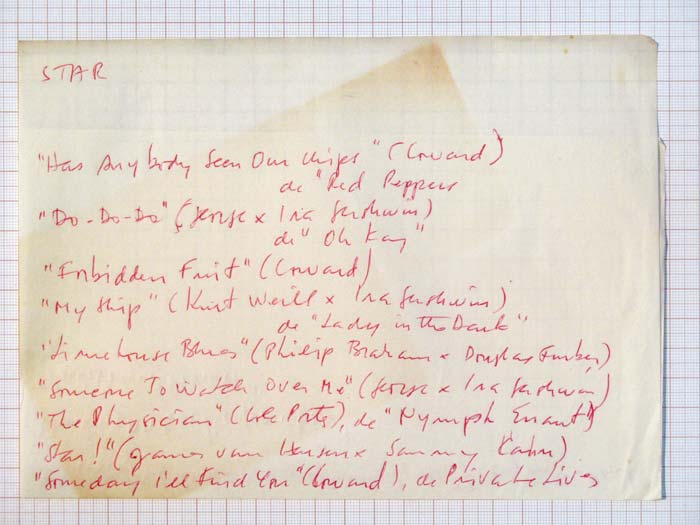 STAR
"Has Anybody Seen Our Ships" (Coward)
de "Red Peppers
"Do-Do-Do" (George x Ira Gershwin)
de "Oh Kay"
"Forbidden Fruit" (Coward)
"My Ship" (Kurt Weill x Ira Gershwin)
de "Lady in the Dark"
"Limehouse Blues" (Philip Braham x Douglas Furber)
"Someone To Watch Over Me" (George x Ira Gershwin)
"The Physician" (Cole Porter), de "Nymph Errant"
"Star!" (James van Heusen x Sammy Cahn)
"Someday i'll Find You" (Coward), de Private Lives